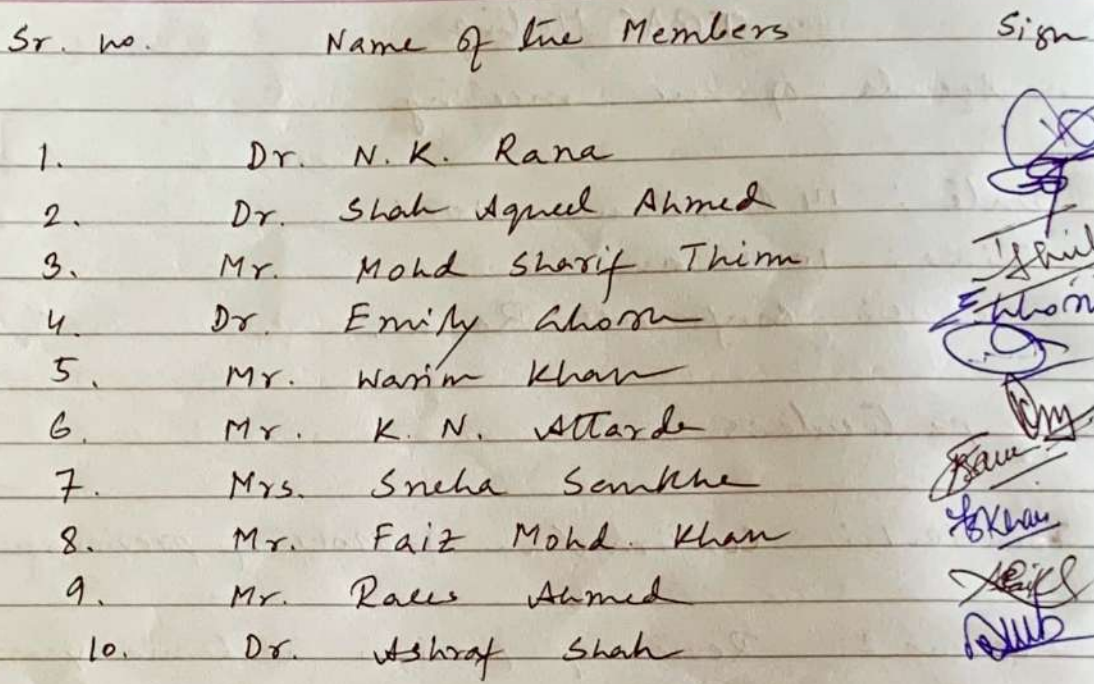 Sr. no. Name of the Members Sign
1. Dr. N. K. Rana
2. Dr. Shah Aqueel Ahmed
3. Mr. Mohd Sharif Thim
4. Dr. Emily Ghosh
5. Mr. Wasim Khan
6. Mr. K. N. Attarde
7. Mrs. Sneha Sankhe
8. Mr. Faiz Mohd. Khan
9. Mr. Raees Ahmed
10. Dr. Ashraf Shah